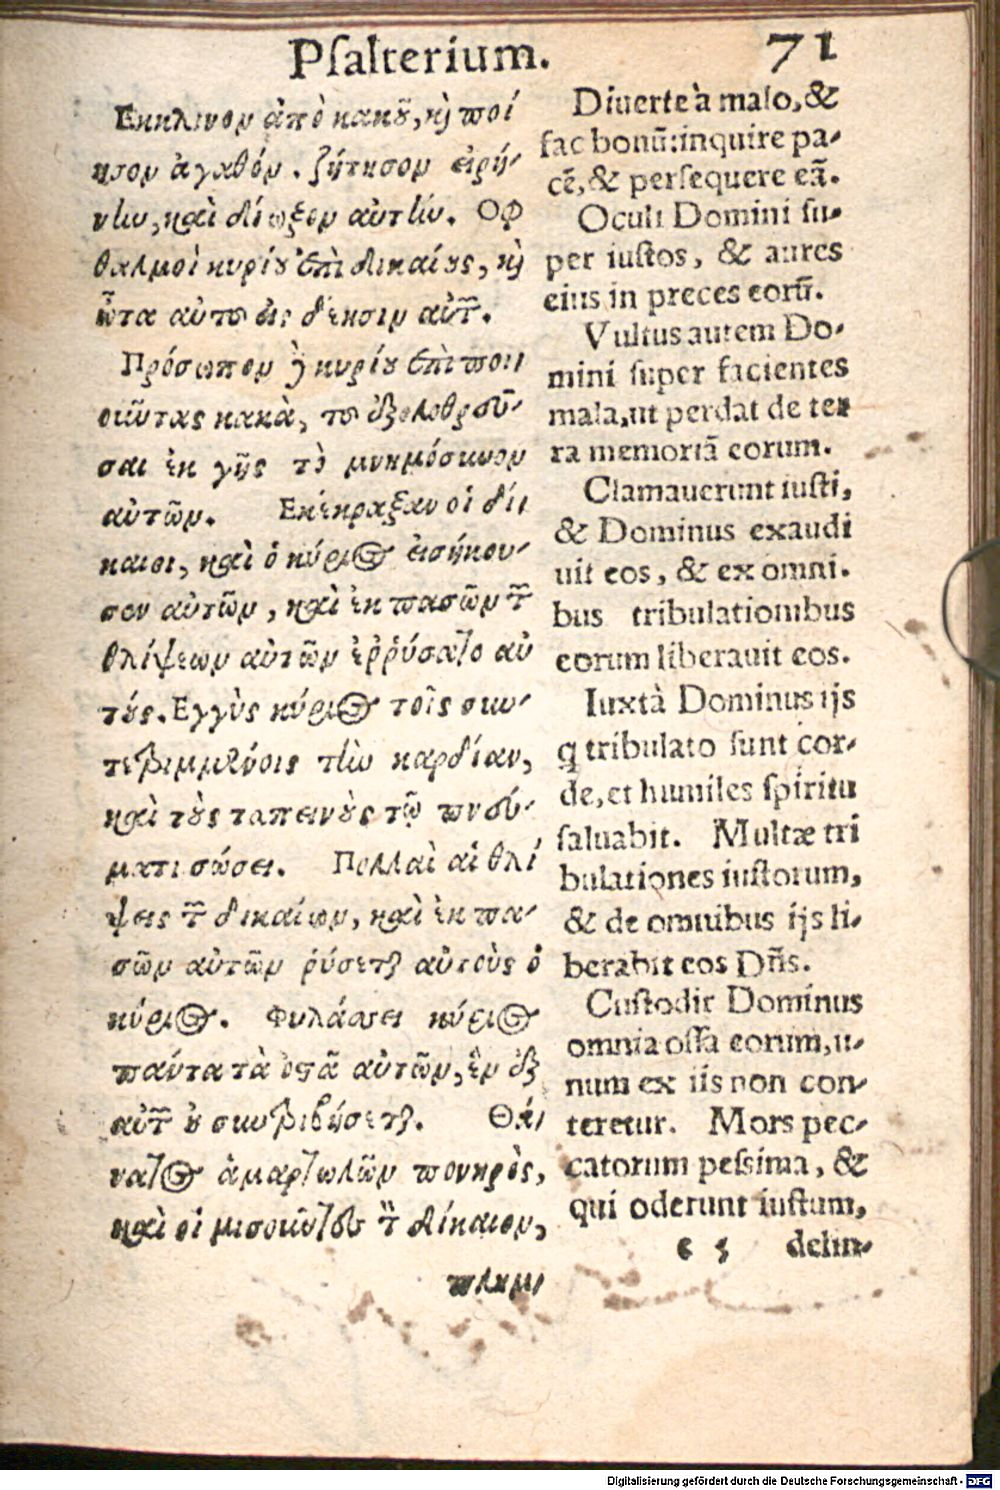 Psalterium. 71
Εκκλινον ἀπὸ κακȣ͂, κὶ ποί
ησον ἀγαθόν. ζήτησον εἰρή-
νίω, καὶ δίωξον αὐτίω. Οφ
θαλμοὶ κυρίȣ ἐπὶ δικαίȣς, κὶ
ὦτα αὐτȣ εἰς δέησιν αὐτ͂.
Πρόσωπον ἢ κυρίȣ ἐπὶ ποι-
οιῶτας κακὰ, τȣ ἐξολοθρεῦ-
σαι ἐκ γῆς τὸ μνημόσιωον
αὐτῶν. Εκέκραξαν οἱ δί-
καιοι, καὶ ὁ κύριος εἰσήκου-
σεν αὐτῶν, καὶ ἐκ πασῶν τ͂
θλίψεων αὐτῶν ἐῤῥύσατο αὐ
τȣ́ς. Εγγὺς κύριος τοῖς σιω-
τετριμμένοις τίω καρδίαν,
καὶ τȣ̀ς ταπεινȣ̀ς τῷ πνεύ-
ματι σώσει. Πολλαὶ αἱ θλί
ψεις τ͂ δικαίων, καὶ ἐκ πα-
σῶν αὐτῶν ῥύσεται αὐτοὺς ὁ
κύριος. Φυλάσσει κύριος
πάντα τὰ ὀστᾶ αὐτῶν, ἓν ἐξ
αὐτ͂ ȣ σιωτριβήσεται. Θά-
νατος ἁμαρτωλῶν πονηρὸς,
καὶ οἱ μισοιῶτες τ̀ δίκαιον,
πλημ-
Diuerte à malo, &
fac bonũ: inquire pa-
cẽ, & persequere eã.
Oculi Domini su-
per iustos, & aures
eius in preces eorũ.
Vultus autem Do-
mini super facientes
mala, ut perdat de ter
ra memoriã eorum.
Clamauerunt iusti,
& Dominus exaudi
uit eos, & ex omni-
bus tribulationibus
eorum liberauit eos.
Iuxtà Dominus ijs
q tribulato sunt cor-
de, et humiles spiritu
saluabit. Multæ tri
bulationes iustorum,
& de omnibus ijs li-
berabit eos Dñs.
Custodit Dominus
omnia ossa eorum, u-
num ex iis non con-
teretur. Mors pec-
catorum pessima, &
qui oderunt iustum,
e 5 delin-
Digitalisierung gefördert durch die Deutsche Forschungsgemeinschaft - DFG